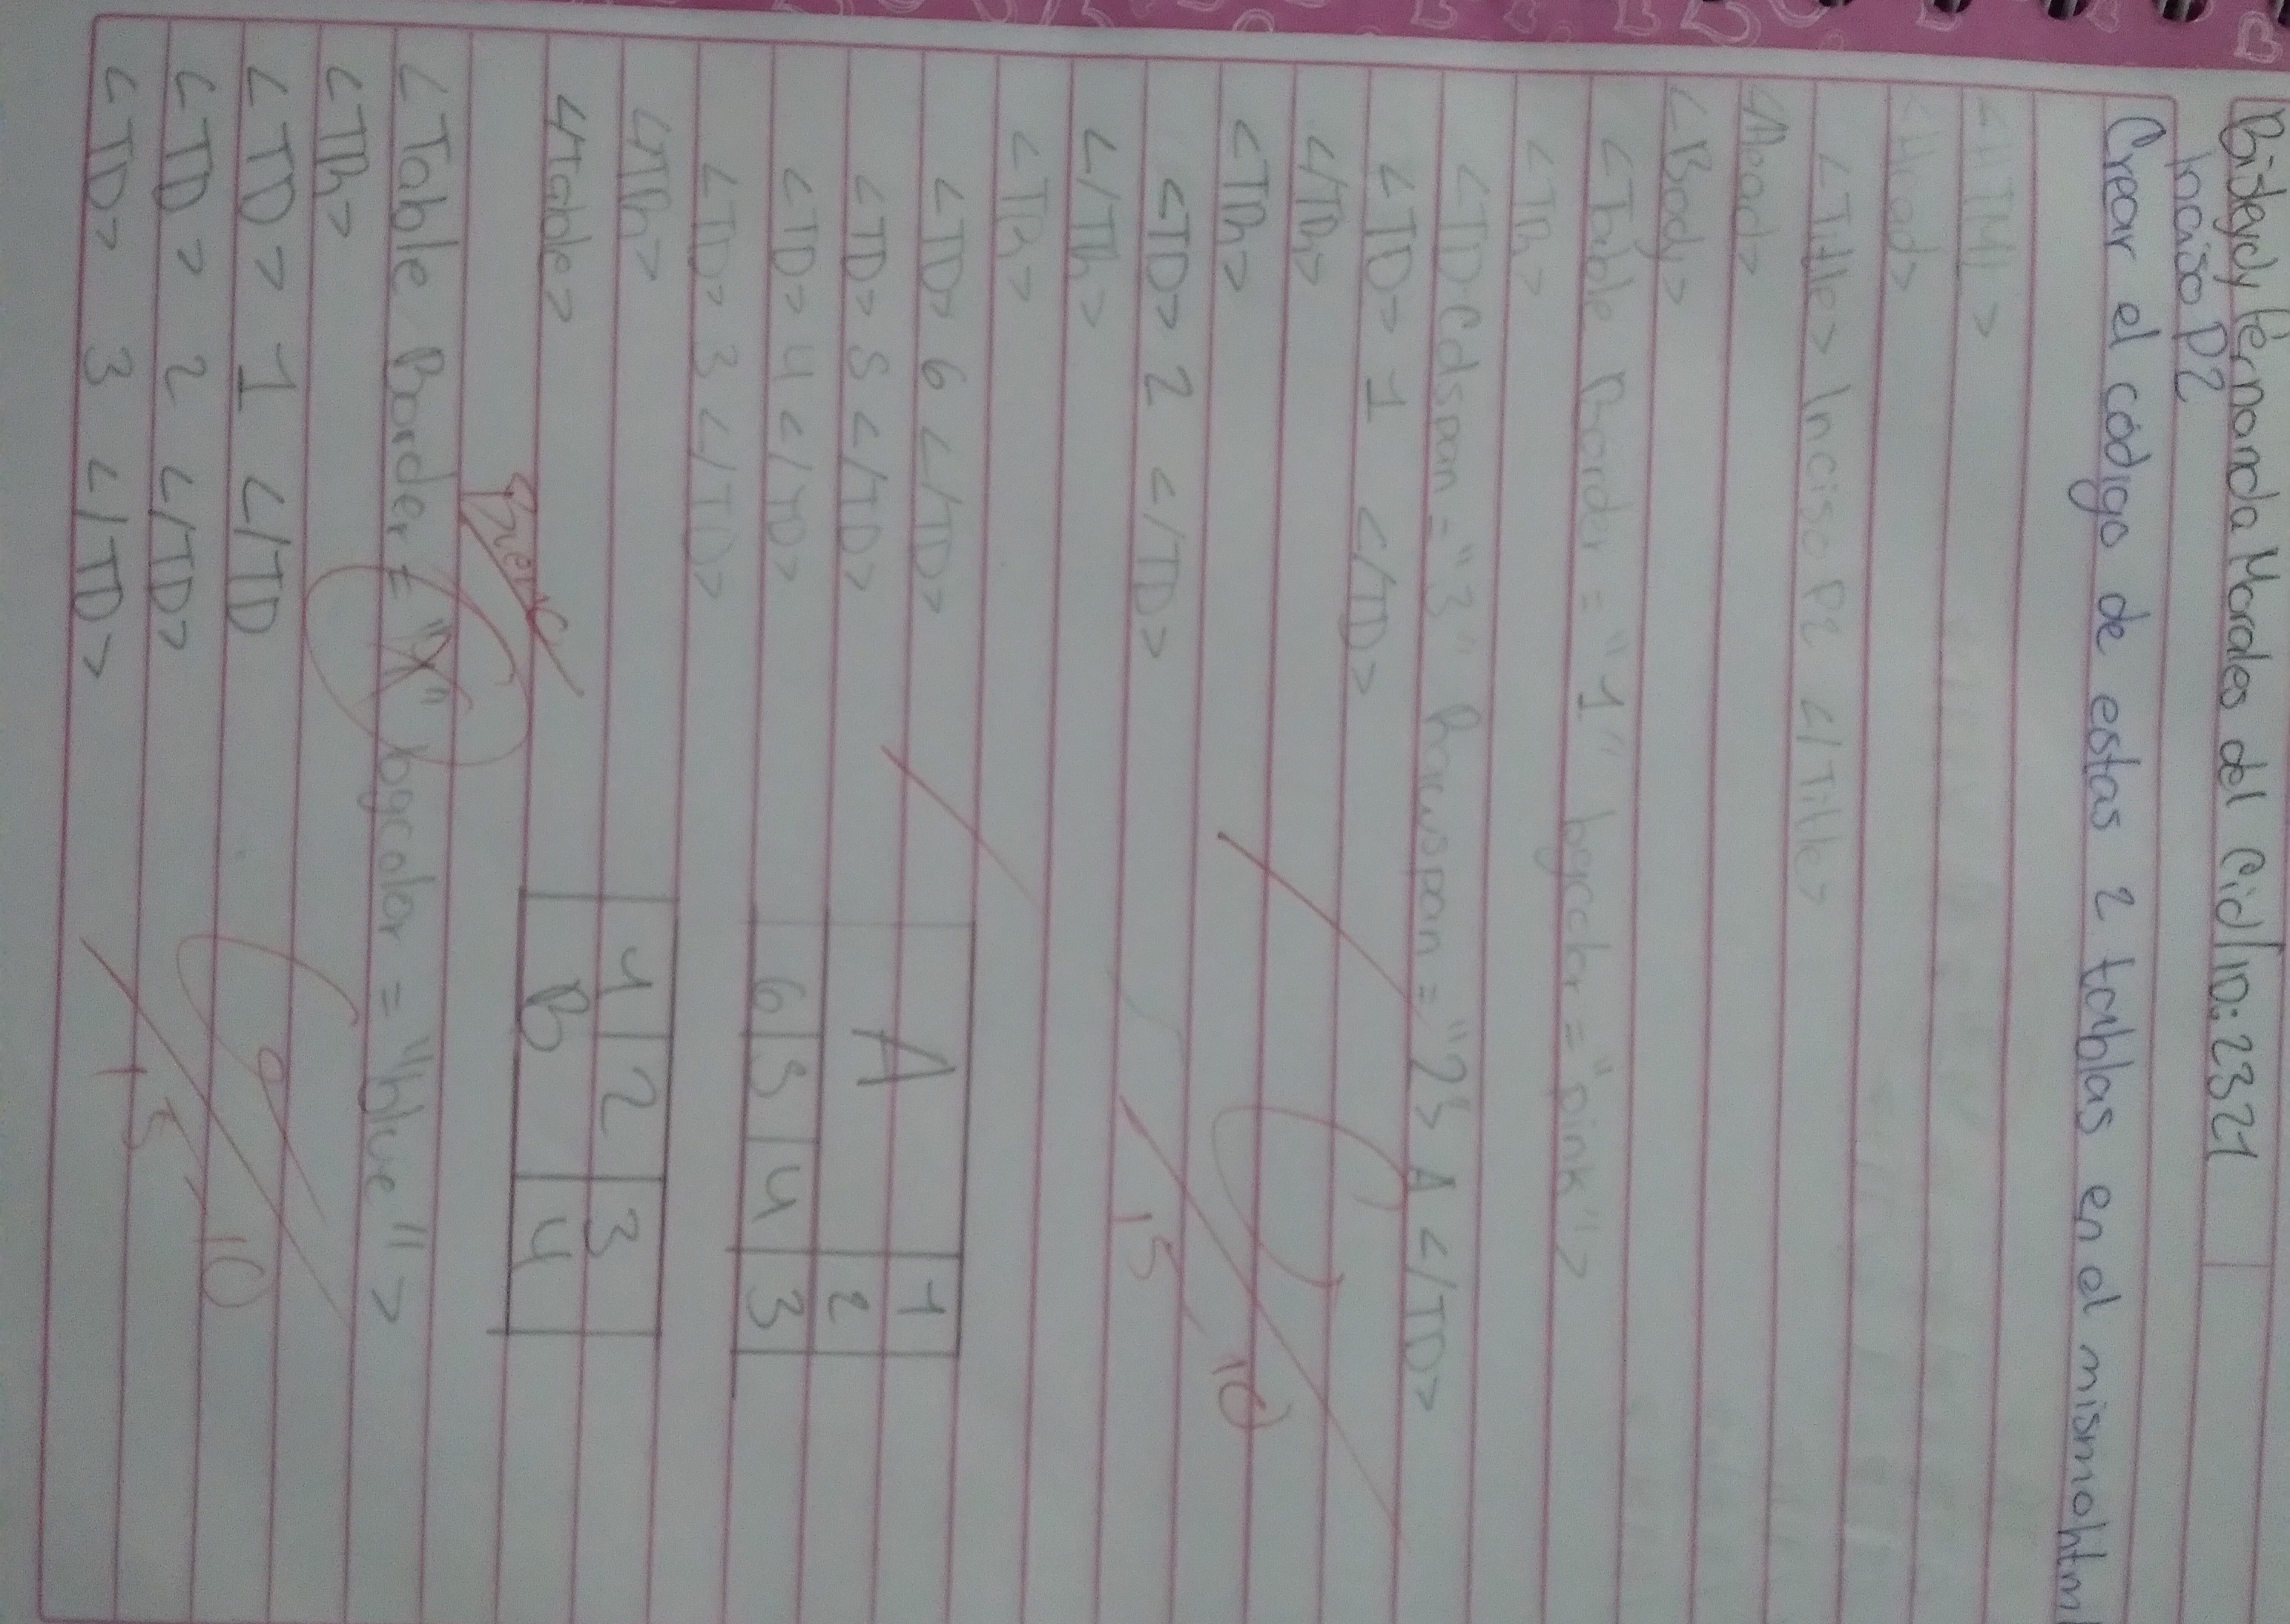 Fernanda Morales del Cid/ID:2321
Inciso P2
Crear el código de estas 2 tablas en el mismo html
<HTMl>
<Head>
<Title> Inciso P2 </Title>
</Head>
<Body>
<Table Border = "1" bgcolor = "pink">
<TR>
<TD Colspan = "3" Rowspan = "2"> A </TD>
<TD> 1 </TD>
</TR>
<TR>
<TD> 2 </TD>
</TR>
<TR>
<TD> 6 </TD>
<TD> 5 </TD>
<TD> 4 </TD>
<TD> 3 </TD>
</TR>
</Table>
A 1
2
6 5 4 3
1 2 3
B 4
<Table Border = bgcolor = "blue">
<TR>
<TD> 1 </TD
<TD> 2 </TD>
<TD> 3 </TD>
15
10
15
10